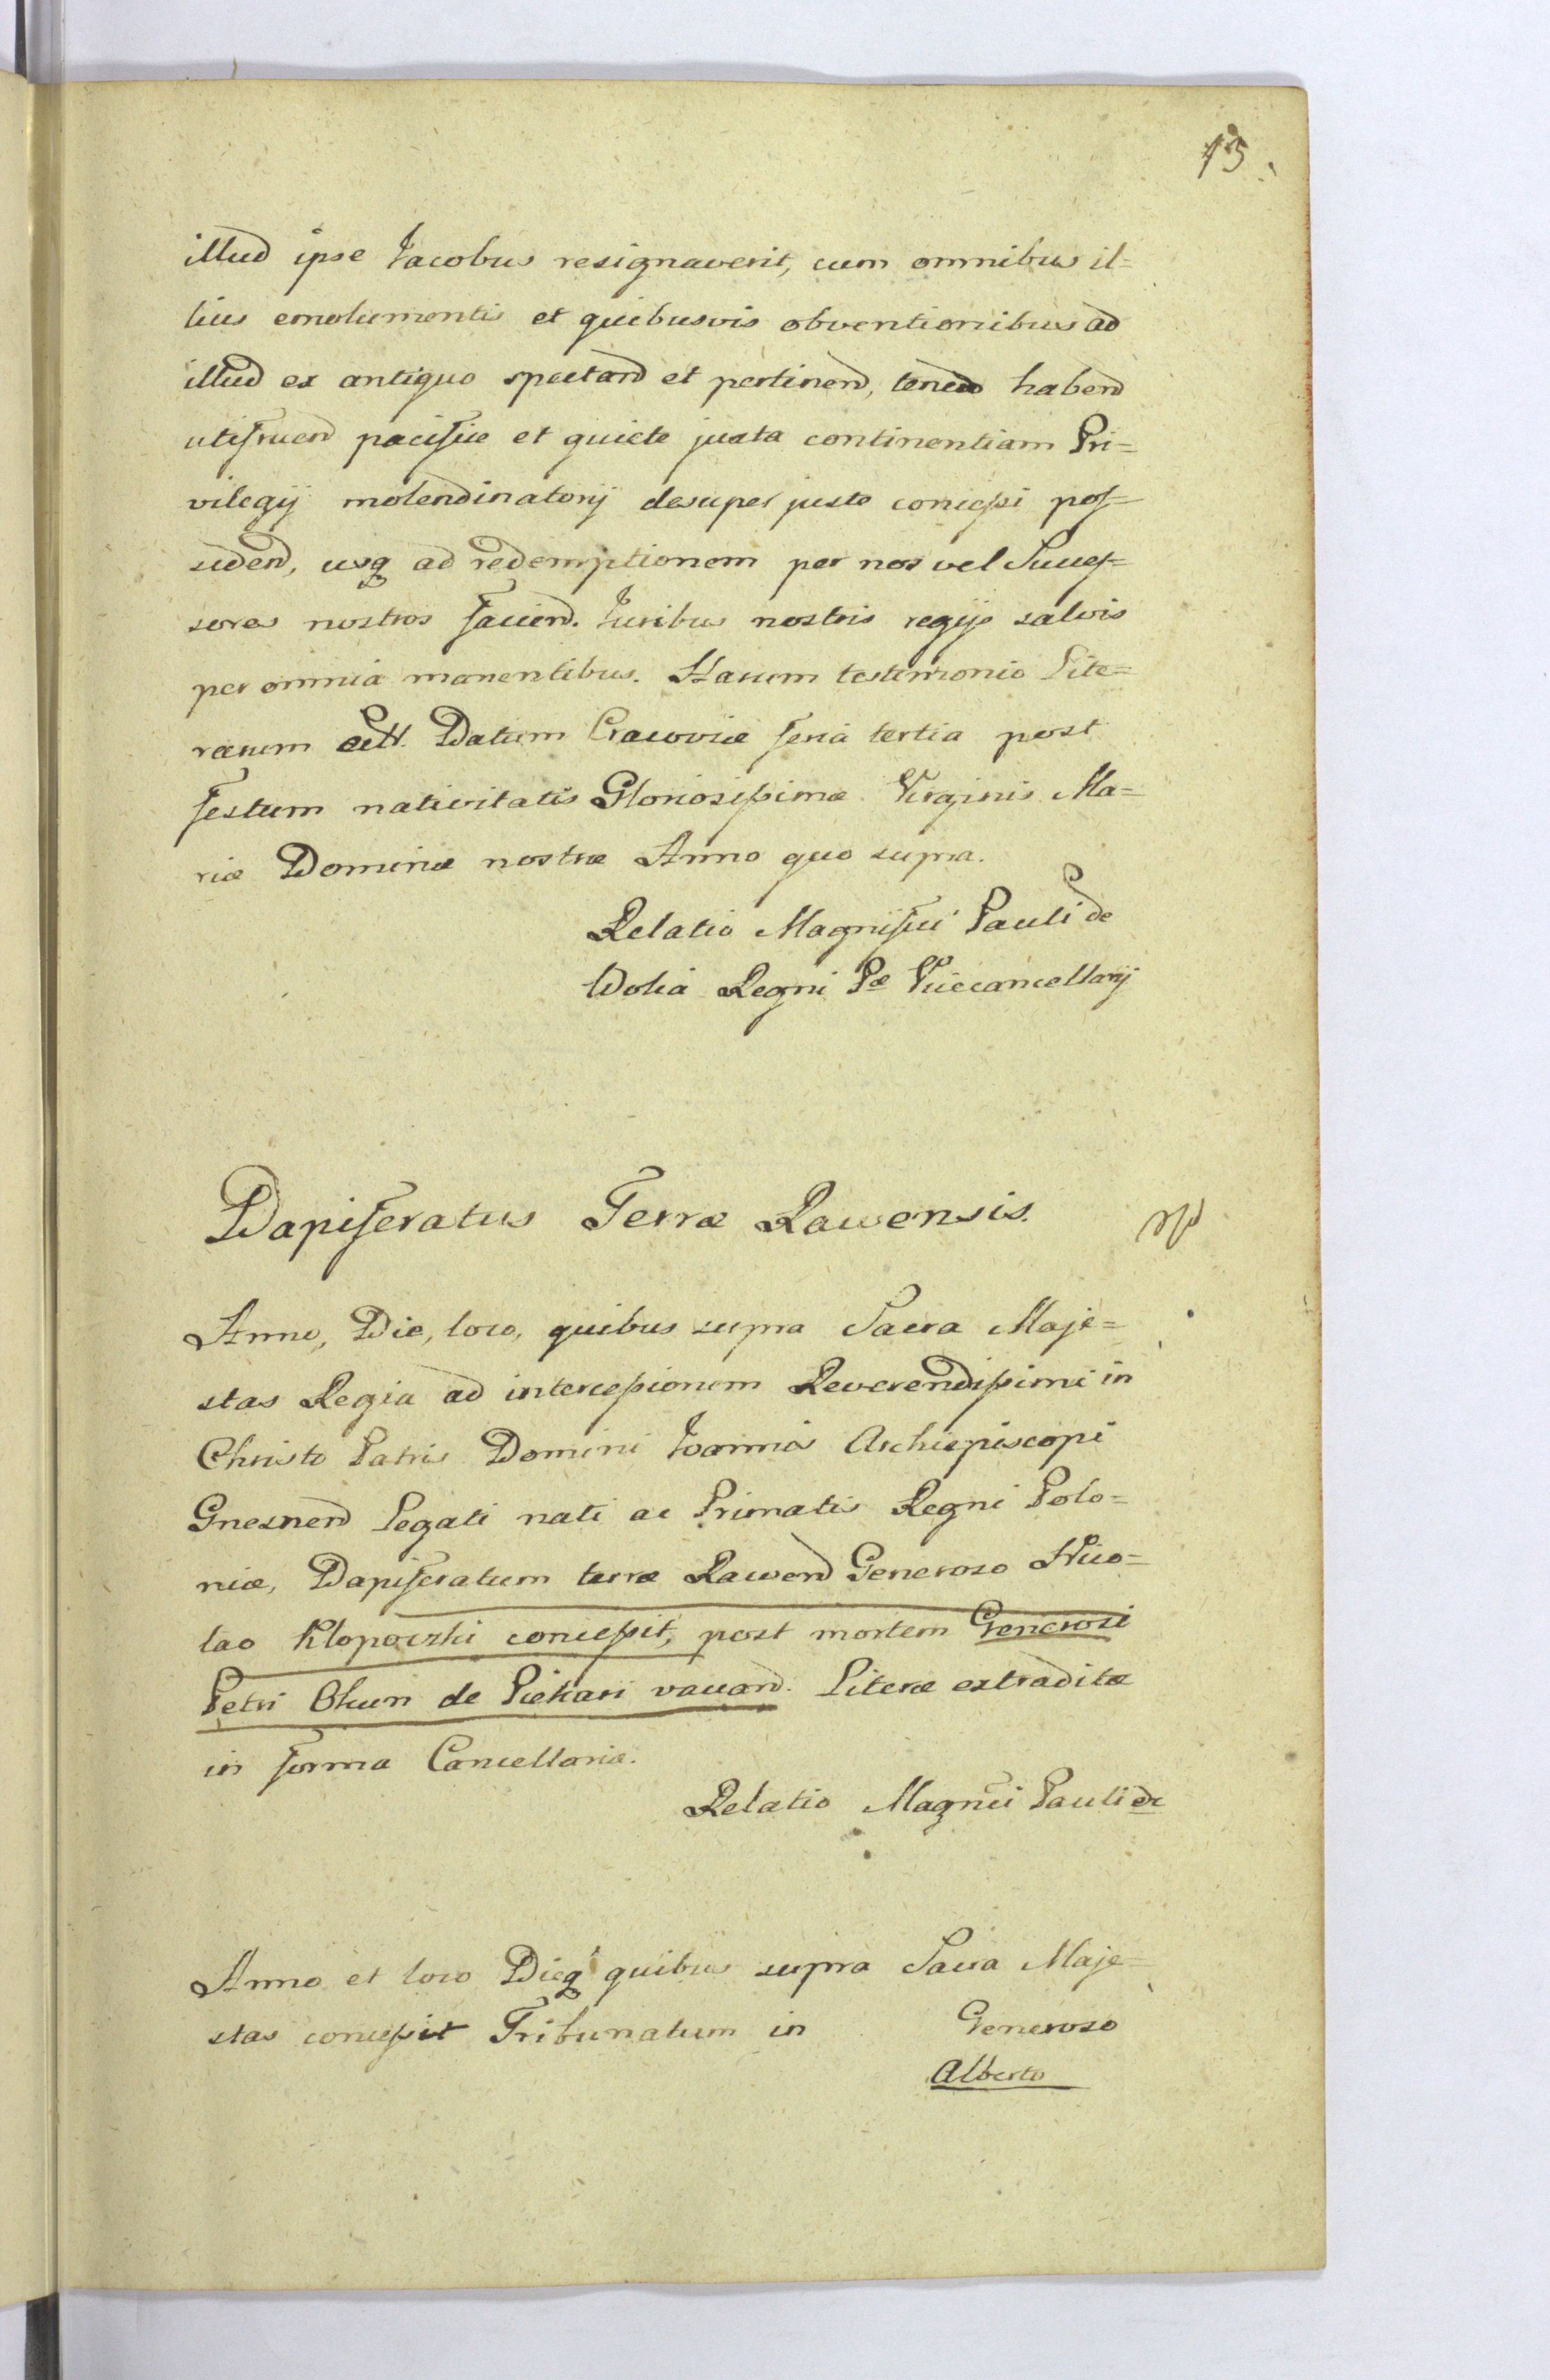 13.
illud ipse Jacobus resignaverit, cum omnibus il=
lius emolumentis et quibusvis obventionibus ad
illud ex antiquo spectand et pertinend, tenend habend
utifruend pacifice et quiete juxta continentiam Pri=
vilegij molendinatorij desuper juste concessi pos=
sidend, usq ad redemptionem per nos vel Succes=
sores nostros faciend. Juribus nostris regijs salvis
per omnia manentibus. Harum testimonio Lite=
rarum Datum Cracoviæ feria tertia post
festum nativitatis Gloriosissimæ Virginis Ma=
riæ Dominæ nostræ Anno quo supra.
Relatio Magnifici Pauli de
Wolia Regni Pæ Vicecancellarij
Dapiferatus Terræ Rawensis.
Anno, Die, loco, quibus supra Sacra Maje=
stas Regia ad intercessionem Reverendissimi in
Christo Patris Domini Joannis Archiepiscopi
Gnesnend Legati nati ac Primatis Regni Polo=
niæ, Dapiferatum terræ Rawend Generoso Nico=
lao Klopoczki concessit, post mortem Generosi
Petri Okun de Piekari vacand. Literæ extraditæ
in forma Cancellariæ.
Relatio Magnici Pauli etc
Anno et loco Dieq quibus supra Sacra Maje=
stas concessit Tribunatum in Generoso
Alberto